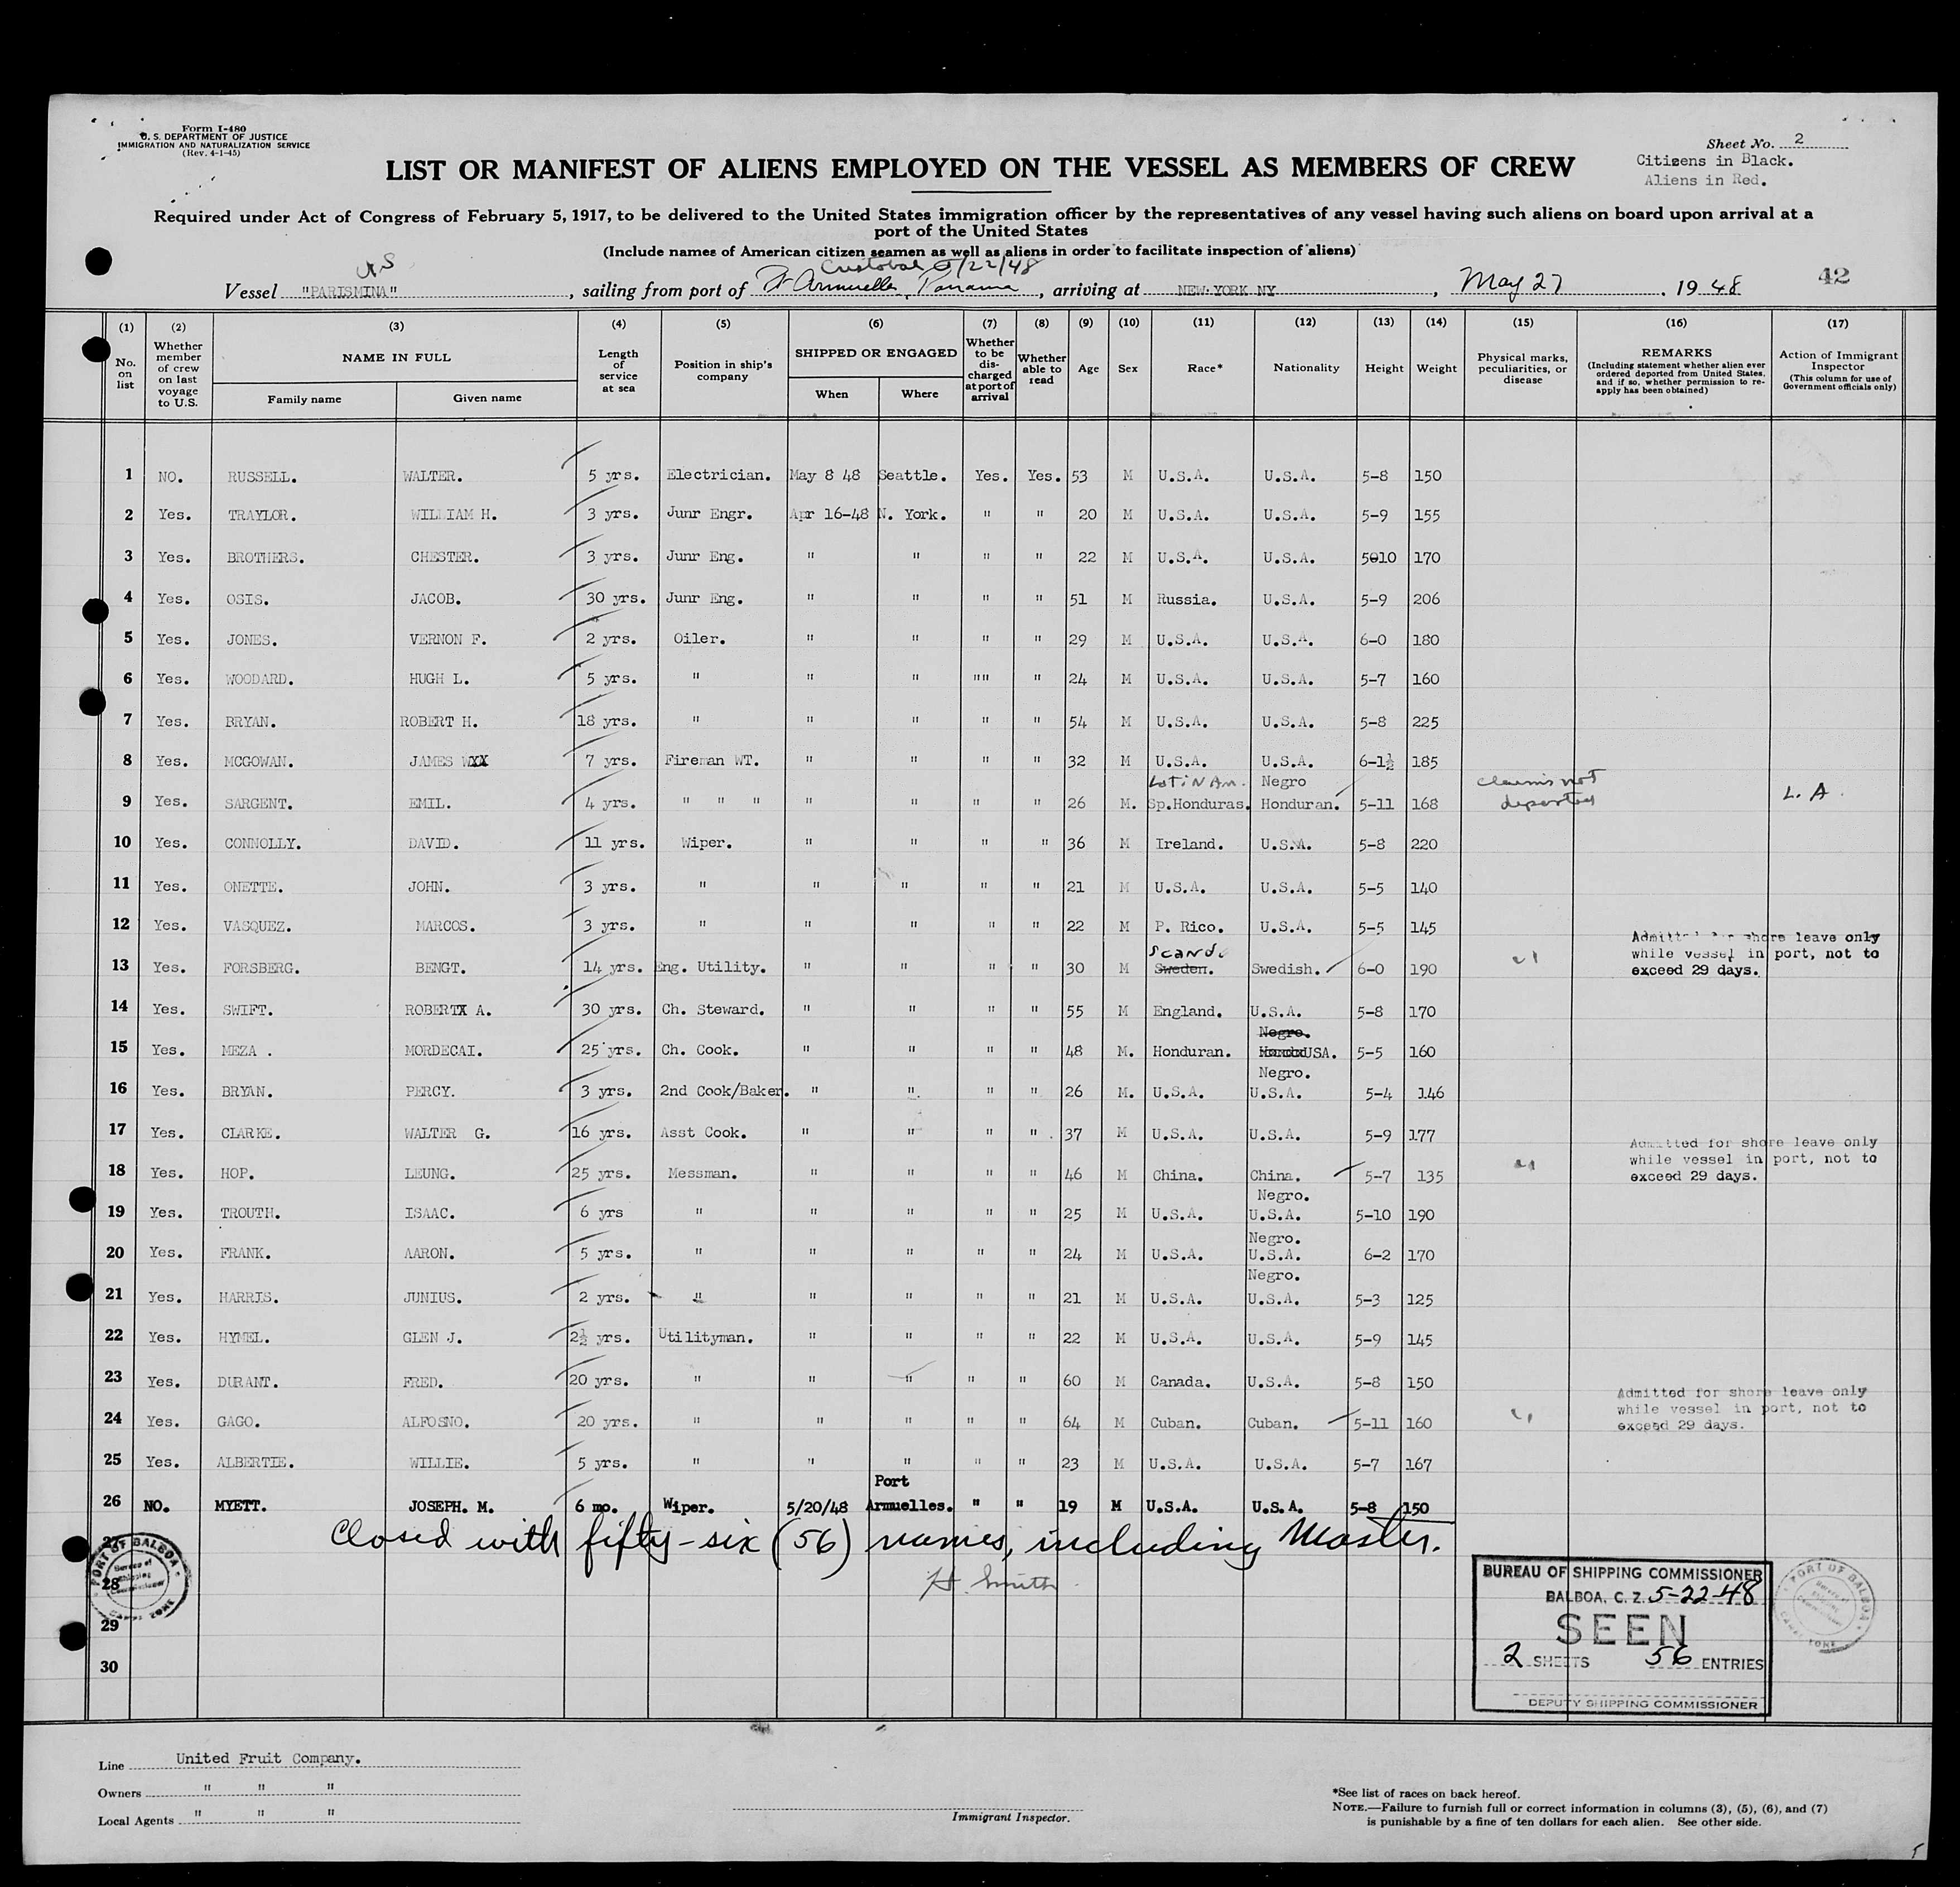 Form I-480
U. S. DEPARTMENT OF JUSTICE
IMMIGRATION AND NATURALIZATION SERVICE
(Rev. 4-1-45)
Sheet No. 2
Citizens in Black.
Aliens in Red.
LIST OR MANIFEST OF ALIENS EMPLOYED ON THE VESSEL AS MEMBERS OF CREW
Required under Act of Congress of February 5, 1917, to be delivered to the United States immigration officer by the representatives of any vessel having such aliens on board upon arrival at a
port of the United States
(Include names of American citizen seamen as well as aliens in order to facilitate inspection of aliens)
Cristobal 5/22/48
Vessel "PARISMINA", sailing from port of Pt Armuelles, Panama, arriving at NEW YORK NY, May 27, 1948
42
(1) (2) (3) (4) (5) (6) (7) (8) (9) (10) (11) (12) (13) (14) (15) (16) (17)
No. on list
Whether member of crew on last voyage to U.S.
NAME IN FULL
Family name
Given name
Length of service at sea
Position in ship's company
SHIPPED OR ENGAGED
When
Where
Whether to be discharged at port of arrival
Whether able to read
Age
Sex
Race*
Nationality
Height
Weight
Physical marks, peculiarities, or disease
REMARKS
(Including statement whether alien ever ordered deported from United States, and if so, whether permission to reapply has been obtained)
Action of Immigrant Inspector
(This column for use of Government officials only)
1 NO. RUSSELL. WALTER. 5 yrs. Electrician. May 8 48 Seattle. Yes. Yes. 53 M U.S.A. U.S.A. 5-8 150
2 Yes. TRAYLOR. WILLIAM H. 3 yrs. Junr Engr. Apr 16-48 N. York. " " 20 M U.S.A. U.S.A. 5-9 155
3 Yes. BROTHERS. CHESTER. 3 yrs. Junr Eng. " " " " 22 M U.S.A. U.S.A. 5010 170
4 Yes. OSIS. JACOB. 30 yrs. Junr Eng. " " " " 51 M Russia. U.S.A. 5-9 206
5 Yes. JONES. VERNON F. 2 yrs. Oiler. " " " " 29 M U.S.A. U.S.A. 6-0 180
6 Yes. WOODARD. HUGH L. 5 yrs. " " " "" " 24 M U.S.A. U.S.A. 5-7 160
7 Yes. BRYAN. ROBERT H. 18 yrs. " " " " " 54 M U.S.A. U.S.A. 5-8 225
8 Yes. MCGOWAN. JAMES WXX 7 yrs. Fireman WT. " " " " 32 M U.S.A. U.S.A. 6-1½ 185
Latin Am. Negro claims not
9 Yes. SARGENT. EMIL. 4 yrs. " " " " " " " 26 M. Sp.Honduras. Honduran. 5-11 168 deported L. A.
10 Yes. CONNOLLY. DAVID. 11 yrs. Wiper. " " " " 36 M Ireland. U.S.A. 5-8 220
11 Yes. ONETTE. JOHN. 3 yrs. " " " " " 21 M U.S.A. U.S.A. 5-5 140
12 Yes. VASQUEZ. MARCOS. 3 yrs. " " " " " 22 M P. Rico. U.S.A. 5-5 145
Scand.
13 Yes. FORSBERG. BENGT. 14 yrs. Eng. Utility. " " " " 30 M Sweden. Swedish. 6-0 190 "
Admitted for shore leave only
while vessel in port, not to
exceed 29 days.
14 Yes. SWIFT. ROBERTX A. 30 yrs. Ch. Steward. " " " " 55 M England. U.S.A. 5-8 170
Negro.
15 Yes. MEZA . MORDECAI. 25 yrs. Ch. Cook. " " " " 48 M. Honduran. USA. 5-5 160
Negro.
16 Yes. BRYAN. PERCY. 3 yrs. 2nd Cook/Baker. " " " " 26 M. U.S.A. U.S.A. 5-4 146
17 Yes. CLARKE. WALTER G. 16 yrs. Asst Cook. " " " " 37 M U.S.A. U.S.A. 5-9 177
18 Yes. HOP. LEUNG. 25 yrs. Messman. " " " " 46 M China. China. 5-7 135 "
Admitted for shore leave only
while vessel in port, not to
exceed 29 days.
Negro.
19 Yes. TROUTH. ISAAC. 6 yrs " " " " " 25 M U.S.A. U.S.A. 5-10 190
Negro.
20 Yes. FRANK. AARON. 5 yrs. " " " " " 24 M U.S.A. U.S.A. 6-2 170
Negro.
21 Yes. HARRIS. JUNIUS. 2 yrs. " " " " " 21 M U.S.A. U.S.A. 5-3 125
22 Yes. HYMEL. GLEN J. 2½ yrs. Utilityman. " " " " 22 M U.S.A. U.S.A. 5-9 145
23 Yes. DURANT. FRED. 20 yrs. " " " " " 60 M Canada. U.S.A. 5-8 150
24 Yes. GAGO. ALFOSNO. 20 yrs. " " " " " 64 M Cuban. Cuban. 5-11 160 "
Admitted for shore leave only
while vessel in port, not to
exceed 29 days.
25 Yes. ALBERTIE. WILLIE. 5 yrs. " " " " " 23 M U.S.A. U.S.A. 5-7 167
Port
26 NO. MYETT. JOSEPH. M. 6 mo. Wiper. 5/20/48 Armuelles. " " 19 M U.S.A. U.S.A. 5-8 150
27 Closed with fifty-six (56) names, including Master.
28 H. Smith
29
30
PORT OF BALBOA
Bureau of Shipping Commissioner
CANAL ZONE
BUREAU OF SHIPPING COMMISSIONER
BALBOA, C. Z. 5-22-48
SEEN
2 SHEETS 56 ENTRIES
DEPUTY SHIPPING COMMISSIONER
PORT OF BALBOA
CANAL ZONE
Line United Fruit Company.
Owners " " "
Local Agents " " "
Immigrant Inspector.
*See list of races on back hereof.
NOTE.—Failure to furnish full or correct information in columns (3), (5), (6), and (7)
is punishable by a fine of ten dollars for each alien. See other side.